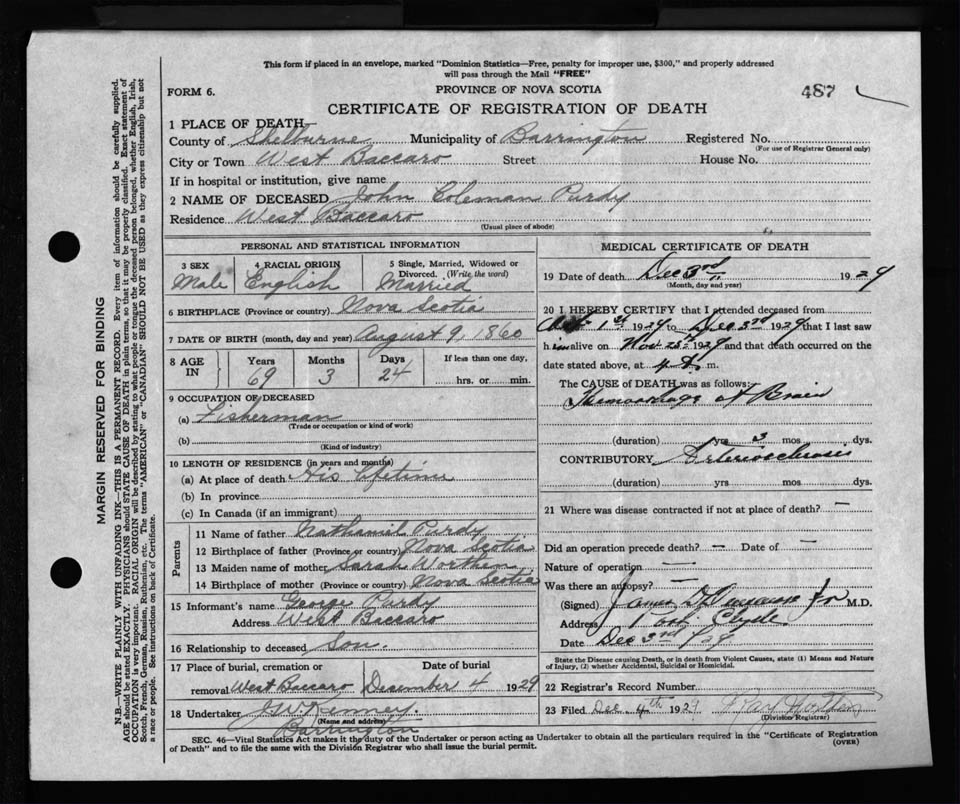 This form if placed in an envelope, marked "Dominion Statistics—Free, penalty for improper use, $300," and properly addressed
will pass through the Mail "FREE"
FORM 6.
PROVINCE OF NOVA SCOTIA
487
CERTIFICATE OF REGISTRATION OF DEATH
1 PLACE OF DEATH
County of Shelburne Municipality of Barrington Registered No.
(For use of Registrar General only)
City or Town West Baccaro Street House No.
If in hospital or institution, give name
2 NAME OF DECEASED John Coleman Purdy
Residence West Baccaro
(Usual place of abode)
PERSONAL AND STATISTICAL INFORMATION
3 SEX 4 RACIAL ORIGIN 5 Single, Married, Widowed or
Divorced. (Write the word)
Male English Married
6 BIRTHPLACE (Province or country) Nova Scotia
7 DATE OF BIRTH (month, day and year) August 9, 1860
8 AGE IN Years Months Days If less than one day,
69 3 24 hrs. or min.
9 OCCUPATION OF DECEASED
(a) Fisherman
(Trade or occupation or kind of work)
(b)
(Kind of industry)
10 LENGTH OF RESIDENCE (in years and months)
(a) At place of death His Lifetime
(b) In province
(c) In Canada (if an immigrant)
Parents
11 Name of father Nathaniel Purdy
12 Birthplace of father (Province or country) Nova Scotia
13 Maiden name of mother Sarah Worthen
14 Birthplace of mother (Province or country) Nova Scotia
15 Informant's name George Purdy
Address West Baccaro
16 Relationship to deceased Son.
17 Place of burial, cremation or Date of burial
removal West Baccaro December 4 1929
18 Undertaker J W Kenney.
(Name and address)
Barrington
MEDICAL CERTIFICATE OF DEATH
19 Date of death Dec 3rd 1929
(Month, day and year)
20 I HEREBY CERTIFY that I attended deceased from
1st 1929 to Dec 3rd 1929 that I last saw
him alive on Nov 25th 1929 and that death occurred on the
date stated above, at 4 m.
The CAUSE of DEATH was as follows:
Hemorrhage of Brain
(duration) yrs 3 mos dys.
CONTRIBUTORY Arteriosclerosis
(duration) yrs mos dys.
21 Where was disease contracted if not at place of death? —
Did an operation precede death? — Date of —
Nature of operation —
Was there an autopsy? —
(Signed) Jr M.D.
Address Port Clyde
Date Dec 3rd /29
State the Disease causing Death, or in death from Violent Causes, state (1) Means and Nature
of Injury, (2) whether Accidental, Suicidal or Homicidal.
22 Registrar's Record Number
23 Filed Dec. 4th 1929
(Division Registrar)
SEC. 46—Vital Statistics Act makes it the duty of the Undertaker or person acting as Undertaker to obtain all the particulars required in the "Certificate of Registration
of Death" and to file the same with the Division Registrar who shall issue the burial permit.
(OVER)
MARGIN RESERVED FOR BINDING
N.B.—WRITE PLAINLY WITH UNFADING INK—THIS IS A PERMANENT RECORD. Every item of information should be carefully supplied.
AGE should be stated EXACTLY. PHYSICIANS should STATE CAUSE OF DEATH in plain terms, so that it may be properly classified. Exact statement of
OCCUPATION is very important. RACIAL ORIGIN will be described by stating to what people or tongue the deceased person belonged, whether English, Irish,
Scotch, French, German, Russian, Ruthenian, etc. The terms "AMERICAN" or "CANADIAN" SHOULD NOT BE USED as they express citizenship but not
a race or people. See instructions on back of Certificate.